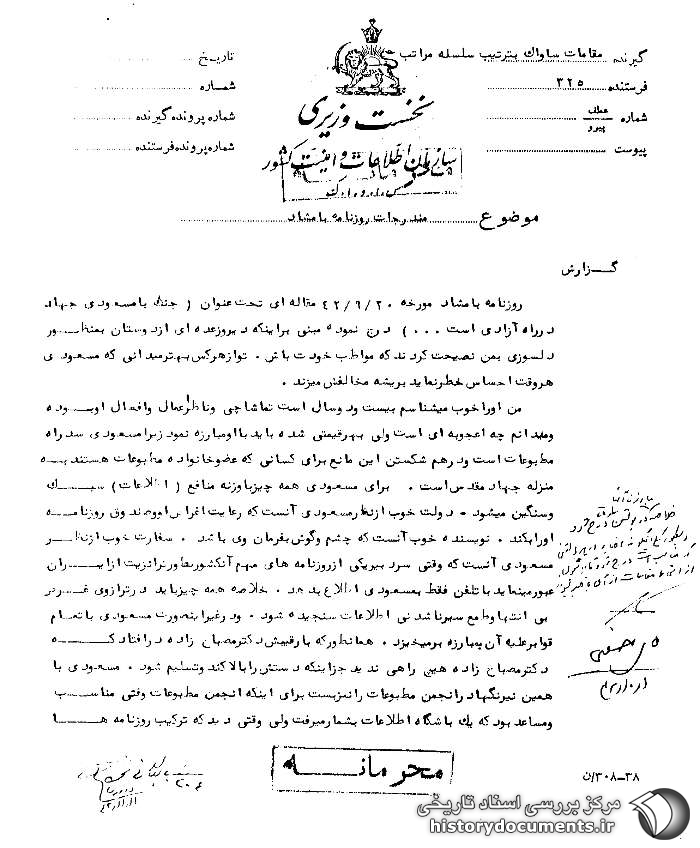 گیرنده مقامات ساواك بترتیب سلسله مراتب
فرستنده ۳۲۵
شماره عطف پیرو
پیوست
تاریخ
شماره
شماره پرونده گیرنده
شماره پرونده فرستنده
نخست وزیری
سازمان اطلاعات و امنیت کشور
موضوع مندرجات روزنامه بامشاد
گزارش
روزنامه بامشاد مورخه ۴۲/۹/۲۰ مقاله ای تحت عنوان ( جنگ با مسعودی جهاد
در راه آزادی است ۰۰۰ ) درج نموده مبنی بر اینکه دیروز عده ای از دوستان بمنظور
دلسوزی بمن نصیحت کردند که مواظب خودت باش ۰ تو از هر کس بهتر میدانی که مسعودی
هر وقت احساس خطر نماید بریشه مخالفش میزند ۰
من اورا خوب میشناسم بیست و دو سال است تماشاچی و ناظر اعمال و افعال او بوده
و میدانم چه اعجوبه ای است ولی بهر قیمتی شده باید با او مبارزه نمود زیرا مسعودی سد راه
مطبوعات است و در هم شکستن این مانع برای کسانی که عضو خانواده مطبوعات هستند به
منزله جهاد مقدس است ۰ برای مسعودی همه چیز با وزنه منافع ( اطلاعات ) سبك
و سنگین میشود ۰ دولت خوب از نظر مسعودی آنست که رعایت اغراض او و صندوق روزنامه
اورا بکند ۰ نویسنده خوب آنست که چشم و گوش بفرمان وی باشد ۰ سفارت خوب از نظر
مسعودی آنست که وقتی سردبیر یکی از روزنامه های مهم آنکشور بطور ترانزیت از ایران
عبور مینماید با تلفن فقط بمسعودی اطلاع بدهد ۰ خلاصه همه چیز باید در ترازوی غرض
بی انتها و طمع سیر ناشدنی اطلاعات سنجیده شود ۰ در غیر اینصورت مسعودی با تمام
قوا بر علیه آن به مبارزه برمیخیزد ۰ همانطور که با رقیبش دکتر مصباح زاده در افتاد که
دکتر مصباح زاده هیچ راهی ندید جز اینکه دستش را بالا کند و تسلیم شود ۰ مسعودی با
همین نیرنگها در انجمن مطبوعات را نیز بست برای اینکه انجمن مطبوعات وقتی مناسب
و مساعد بود که یك باشگاه اطلاعات بشمار میرفت ولی وقتی دید که ترکیب روزنامه ها
محرمانه
۳۸-۳۰۸/ن
مرکز بررسی اسناد تاریخی
historydocuments.ir